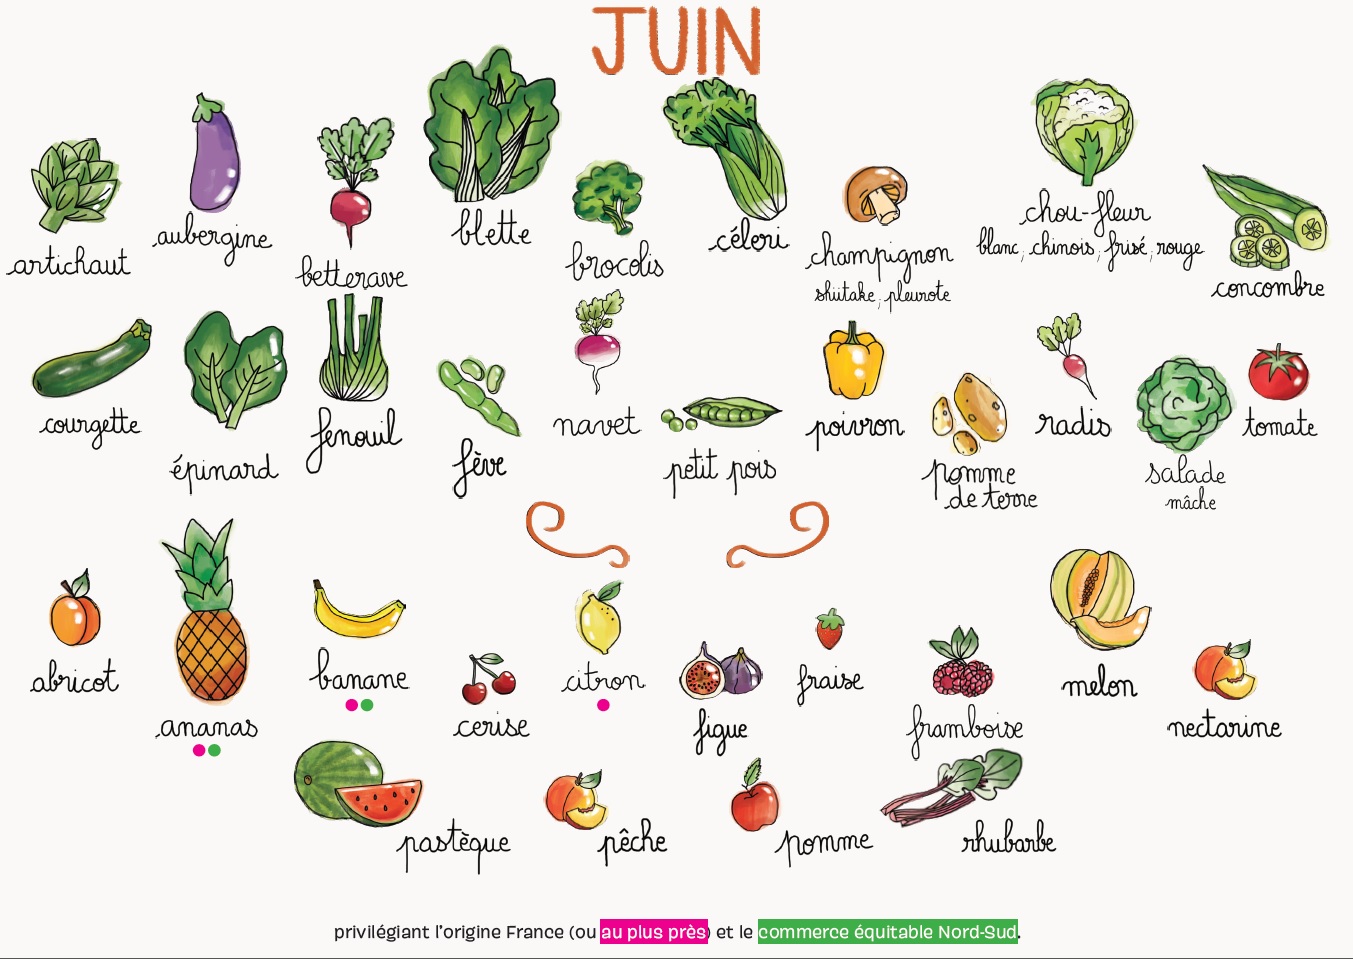 JUIN
artichaut
aubergine
betterave
blette
brocolis
céleri
champignon
shiitake, pleurote
chou-fleur
blanc, chinois, frisé, rouge
concombre
courgette
épinard
fenouil
fève
navet
petit pois
poivron
pomme
de terre
radis
salade
mâche
tomate
abricot
ananas
banane
cerise
citron
figue
fraise
framboise
melon
nectarine
pastèque
pêche
pomme
rhubarbe
privilégiant l'origine France (ou au plus près) et le commerce équitable Nord-Sud.